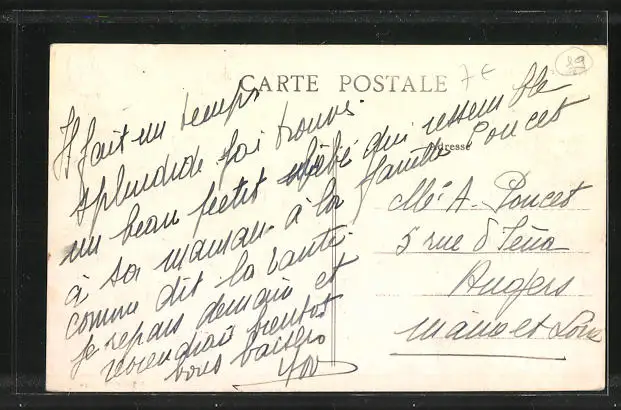 CARTE POSTALE
7€
89
Adresse
Il fait un temps
splendide j'ai trouvé
un beau petit bébé qui ressemble
à sa maman. à la famille Poucet
comme dit la
je repars demain et
reviendrai bientôt
bons baisers
Yov
Mr A. Poucet
5 rue d'Iéna
Angers
Maine et Loire